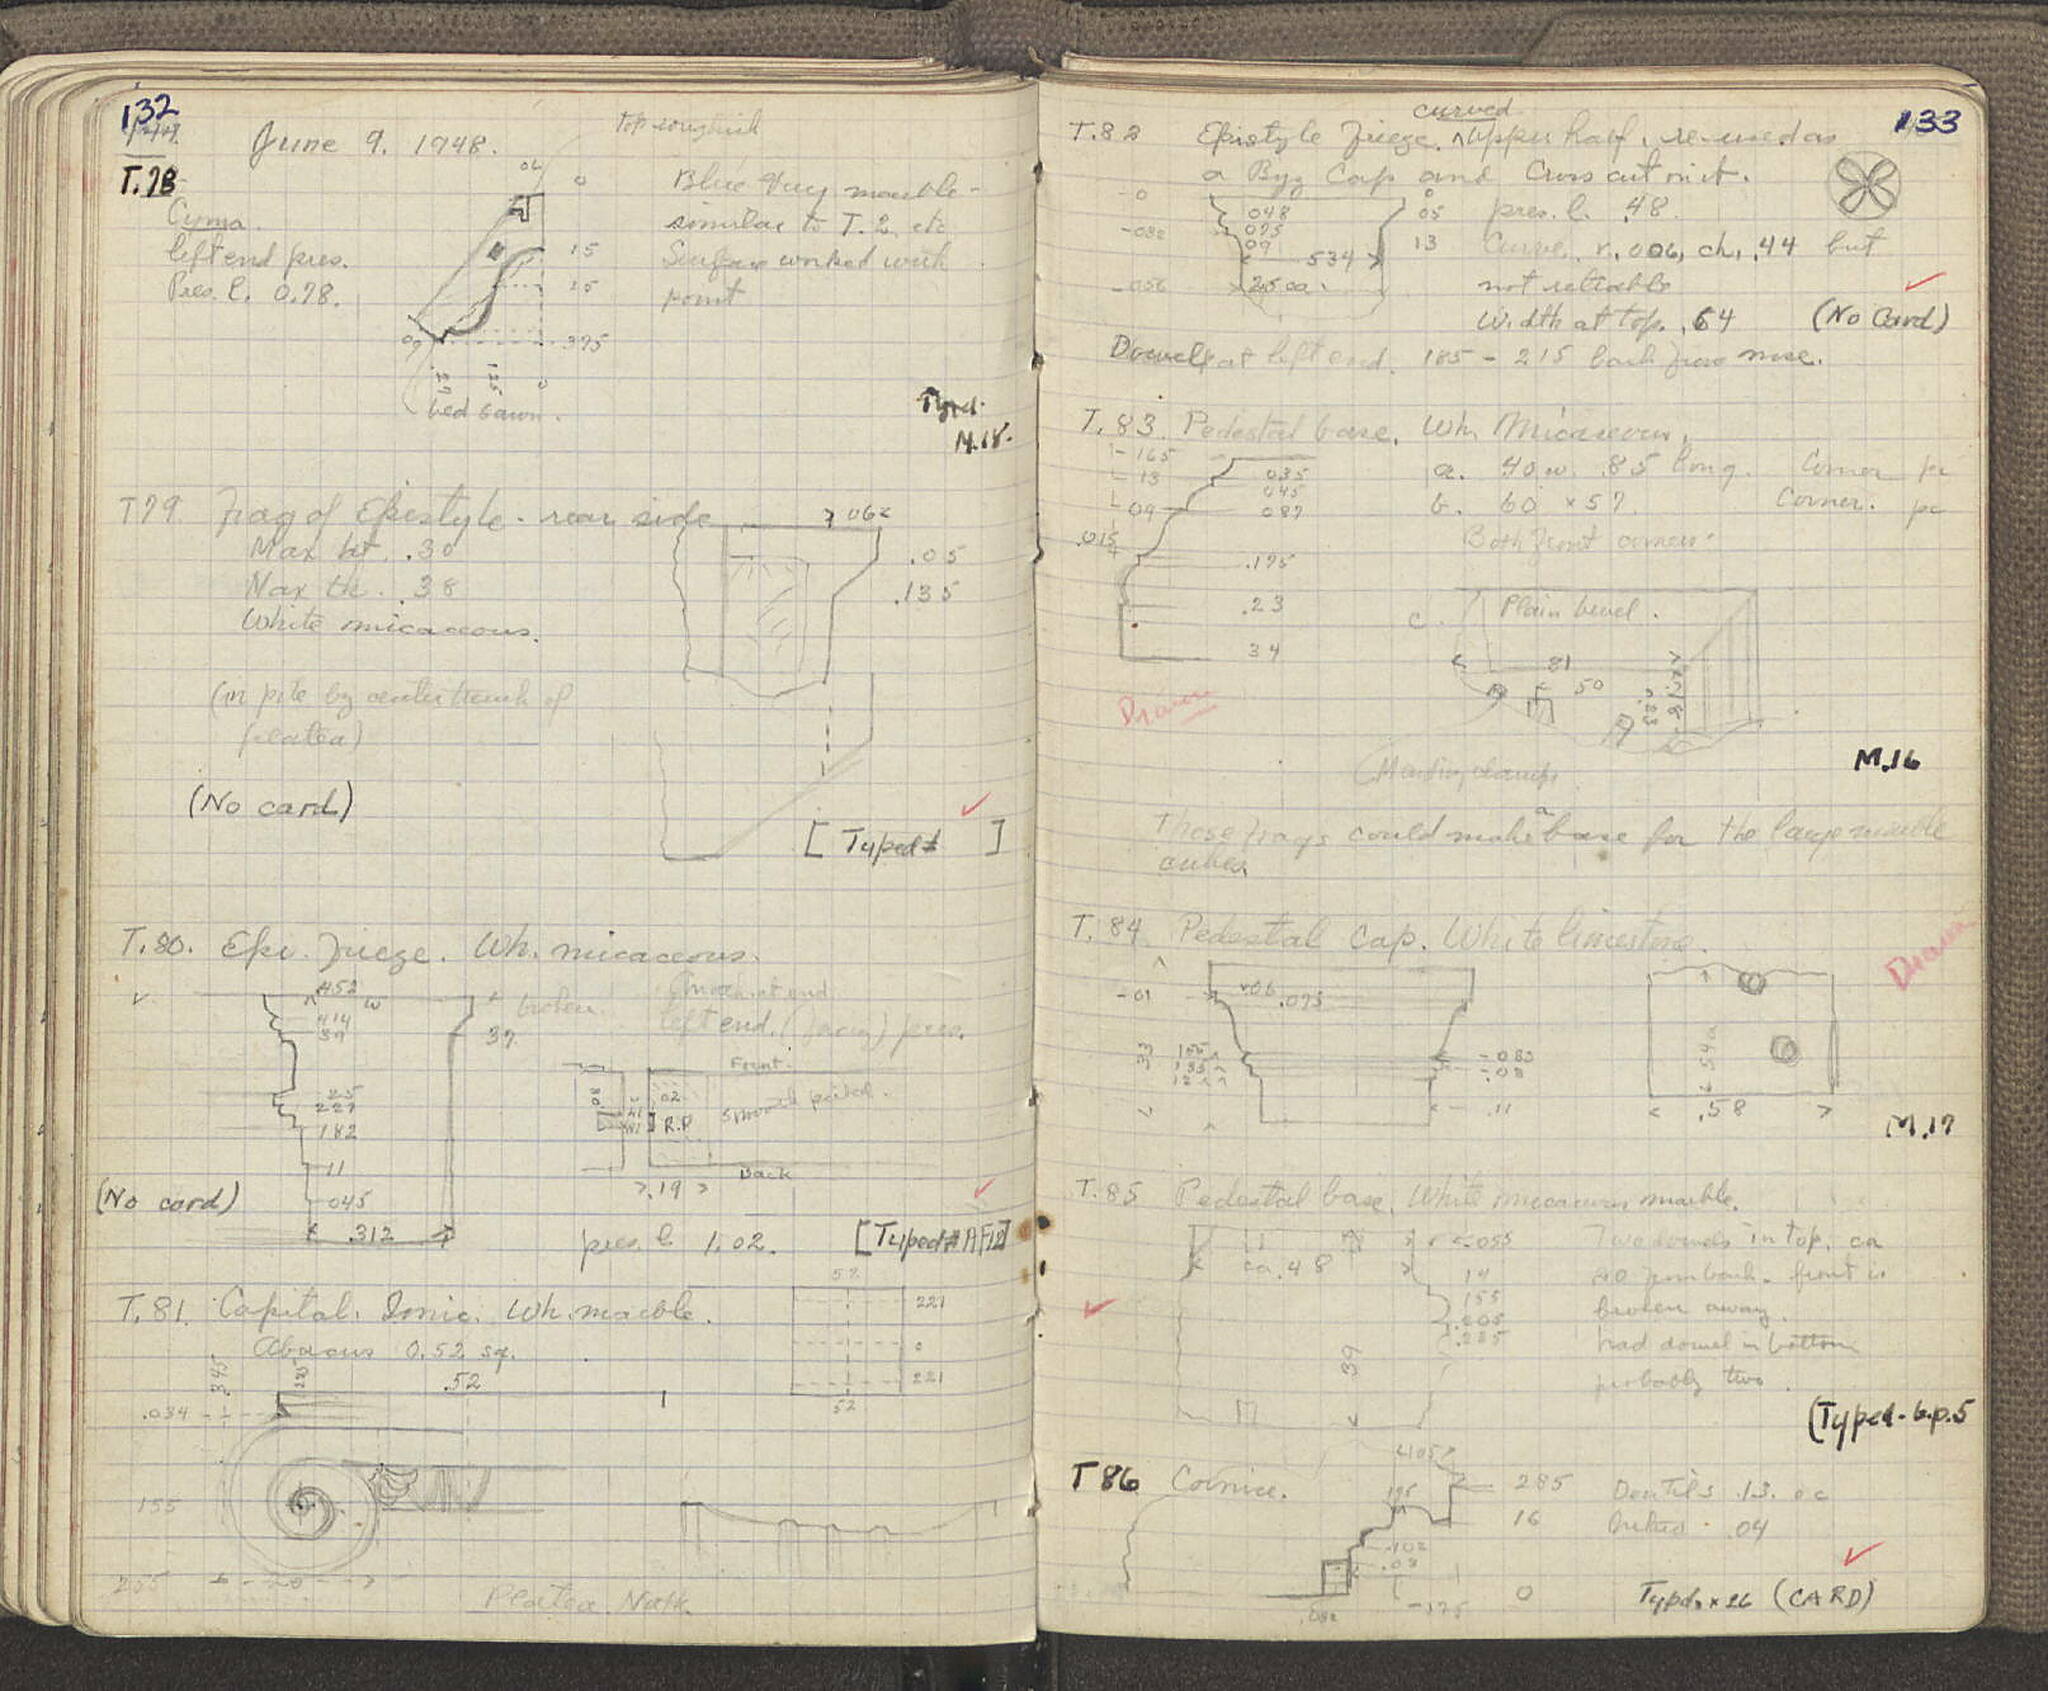 132
June 9. 1948.
top roughish
T.78
Cyma
left end pres.
Pres. l. 0.78.
06
0
15
15
375
09
.29
125
0
bed
Blue Grey marble -
similar to T. 2. etc
Surface worked with
point
Typed.
M.18.
T79 Frag of Epistyle - rear side
Max ht. .30
Max th. .38
White micaceous.
.05
.135
(in pile by center trench of
platea)
(No card)
[Typed# ]
T.80. Epi. Frieze. Wh. micaceous.
.452
414
39
broken
37
left end. pres.
225
227
182
11
045
.312
Front.
Smooth picked.
02
R.P
Back
.19
(No card)
pres. l 1.02.
[Typed# AF12]
T.81. Capital. Ionic. Wh. marble.
Abacus 0.52 sq.
345
.52
52
221
0
221
52
.034
155
255
20
Platea North.
133
T.82 Epistyle Frieze. ^curved Upper half, re-used as
a Byz Cap and Cross cut on it.
0
048
075
09
0
05
13
534
pres. l. .48.
Curve. r. .006, ch. .44 but
not reliable
Width at top. .64
(No Card)
Dowel at left end. 185 - 215 back from nose.
T.83. Pedestal base. Wh. Micaceous.
165
13
09
.015
035
045
087
.175
.23
34
a. 40 w. .85 long. Corner pc
b. 60 × 57. Corner. pc
Both front corners.
c.
Plain bevel.
81
50
Drawn
M.16
These frags could make a base for the large marble
cubes.
T.84 Pedestal Cap. White limestone.
Drawn
-01
.06
.075
33
155
135
12
-083
-.08
.11
.58
M.17
T.85 Pedestal base. White micaceous marble.
ca .48
.055
14
155
.205
.285
39
Two dowels in top. ca
20 from back. front is
broken away.
had dowel in bottom
probably two.
(Typed - b.p.5
T86 Cornice.
195
285
16
.102
.03
0
Dentils .13.
04
Typd. × 26 (CARD)